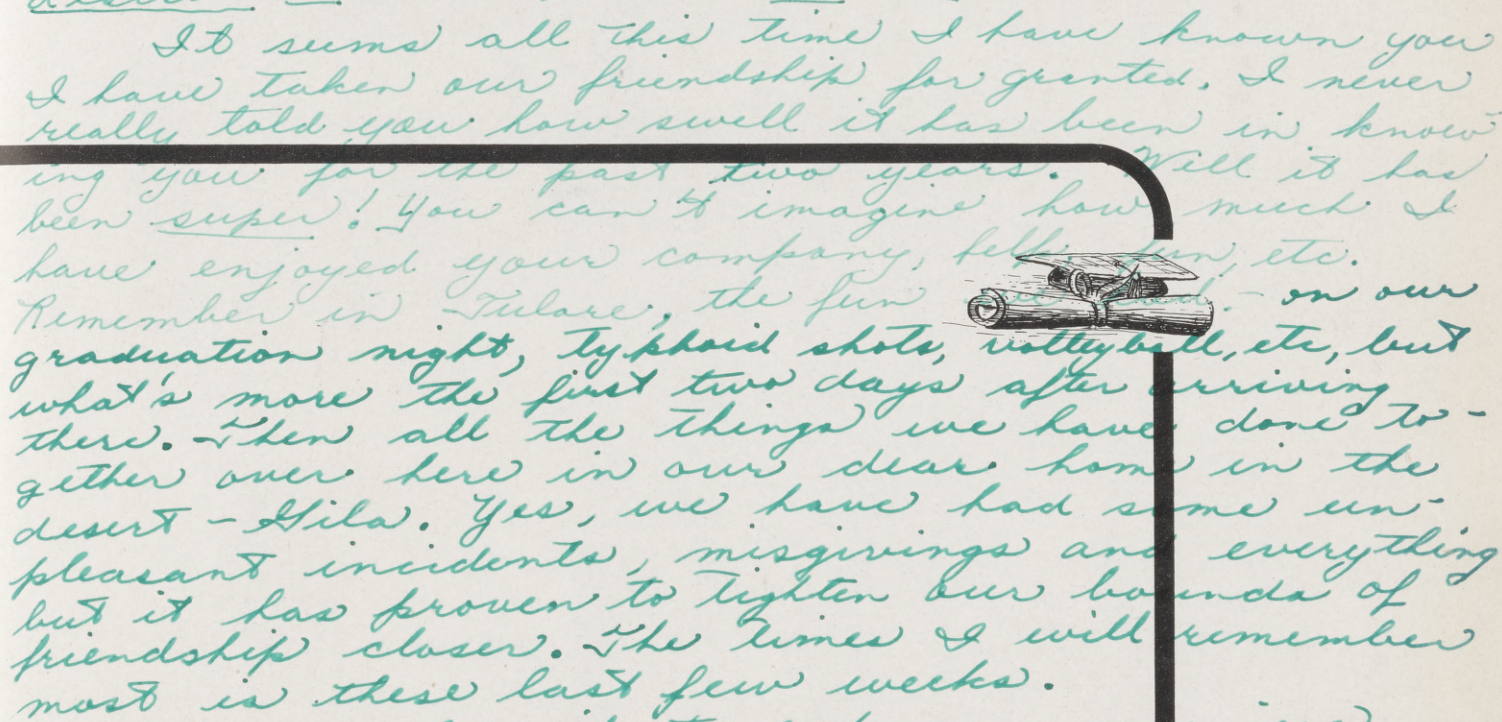 It seems all this time I have known you
I have taken our friendship for granted. I never
really told you how swell it has been in know-
ing you for the past two years. Well it has
been super! You can't imagine how much I
have enjoyed your company, fun, etc.
Remember in Tulare, the fun - on our
graduation night, typhoid shots, volleyball, etc, but
what's more the first two days after arriving
there. Then all the things we have done to-
gether over here in our dear home in the
desert - Gila. Yes, we have had some un-
pleasant incidents, misgivings and everything
but it has proven to tighten our bounds of
friendship closer. The times I will remember
most is these last few weeks.